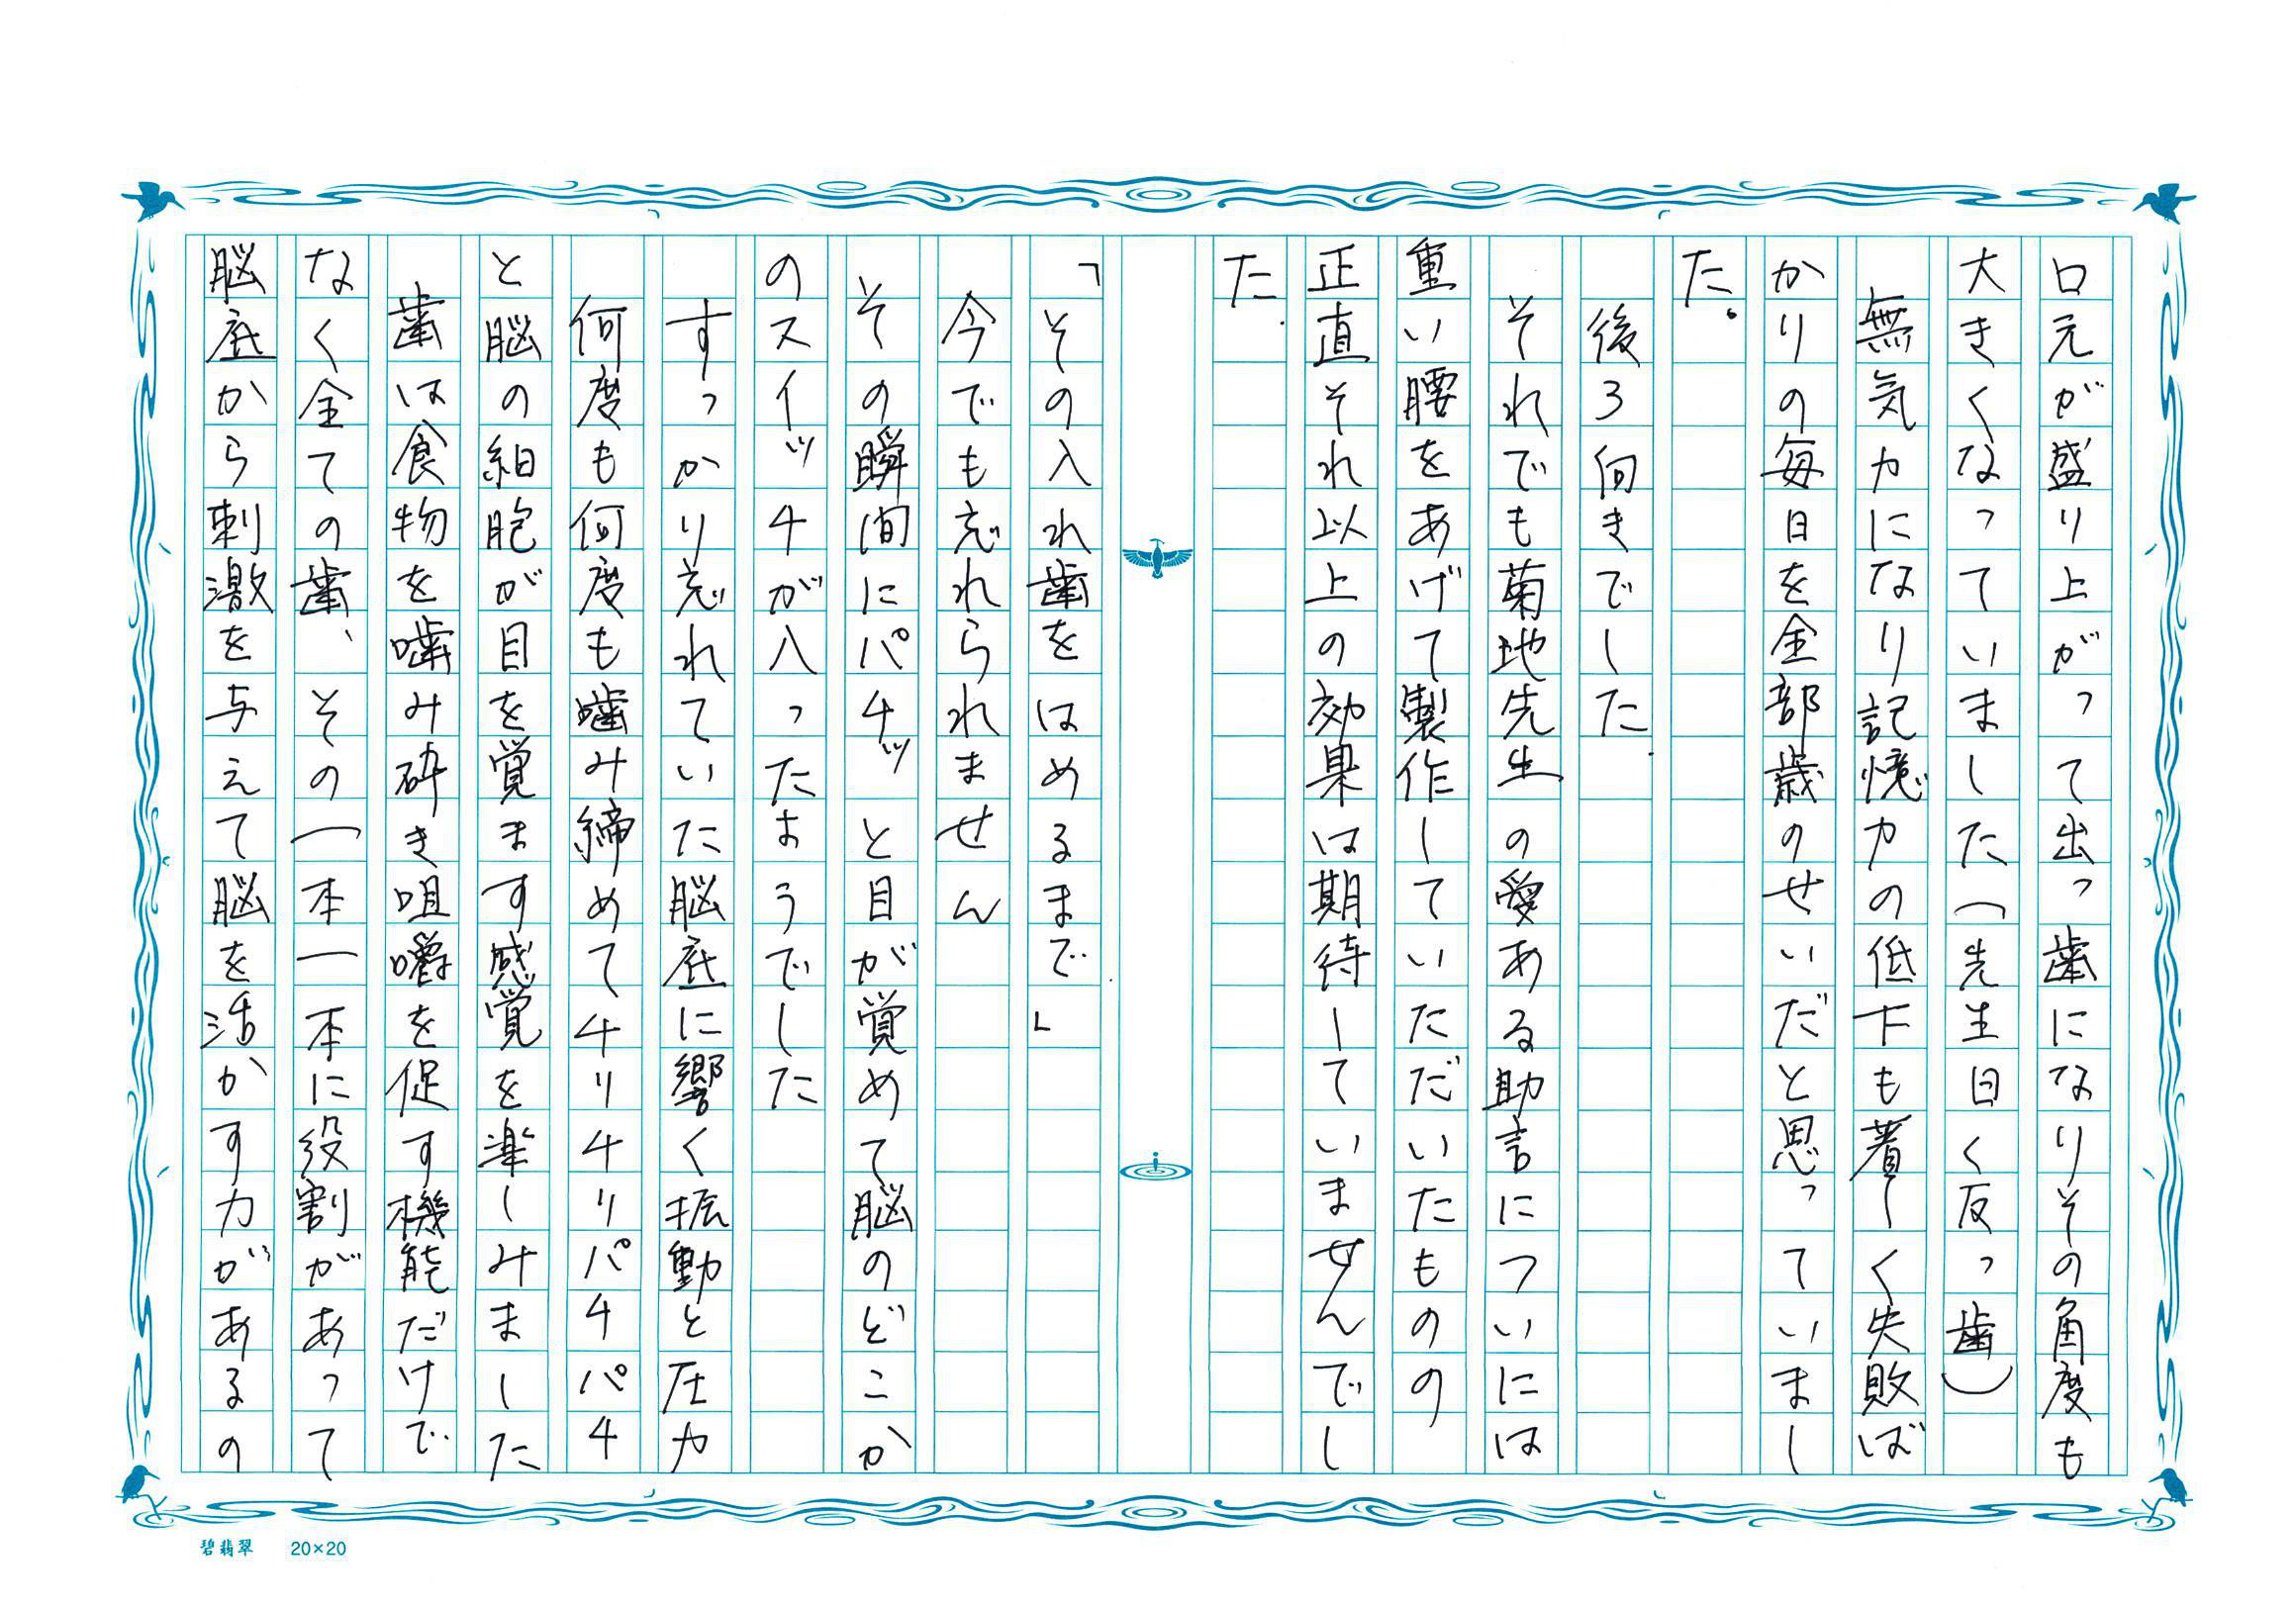 口元が盛り上がって出っ歯になりその角度も
大きくなっていました(先生曰く反っ歯)
無気力になり記憶力の低下も著しく失敗ば
かりの毎日を全部歳のせいだと思っていまし
た。
後ろ向きでした.
それでも菊地先生の愛ある助言についには
重い腰をあげて製作していただいたものの
正直それ以上の効果は期待していませんでし
た.
「その入れ歯をはめるまで」
今でも忘れられません
その瞬間にパチッと目が覚めて脳のどこか
のスイッチが入ったようでした
すっかり忘れていた脳底に響く振動と圧力
何度も何度も噛み締めてチリチリパチパチ
と脳の細胞が目を覚ます感覚を楽しみました
歯は食物を噛み砕き咀嚼を促す機能だけで
なく全ての歯、その一本一本に役割があって
脳底から刺激を与えて脳を活かす力があるの
碧翡翠 20×20